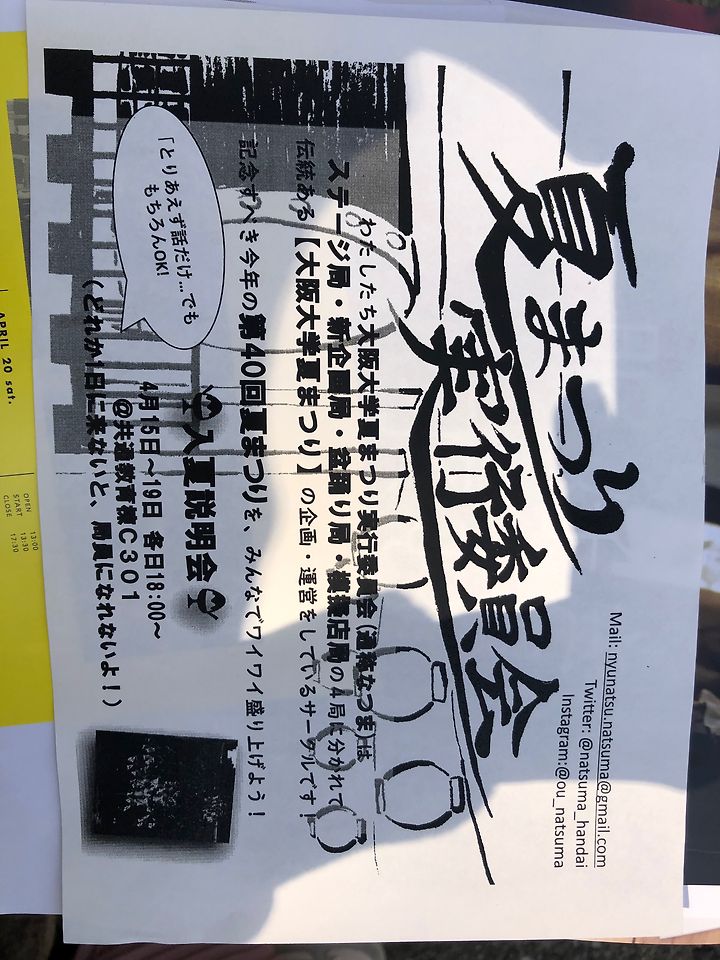 夏まつり
実行委員会
Mail: nyunatsu.natsuma@gmail.com
Twitter: @natsuma_handai
Instagram:@ou_natsuma
わたしたち大阪大学夏まつり実行委員会(通称なつま)は
ステージ局・新企画局・盆踊り局・模擬店局の4局に分かれて
伝統ある【大阪大学夏まつり】の企画・運営をしているサークルです!
記念すべき今年の第40回夏まつりを、みんなでワイワイ盛り上げよう!
「とりあえず話だけ...でも
もちろんOK!
入夏説明会
4月15日~19日 各日18:00~
@共通教育棟C301
(どれか1日に来ないと、局員になれないよ!)
APRIL 20 sat.
OPEN 13:00
START 13:30
CLOSE 17:30